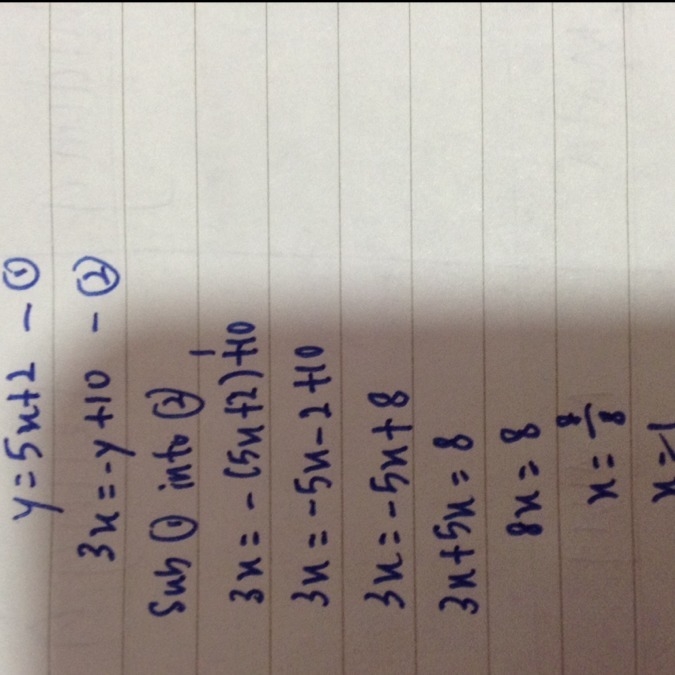 y=5x+2 - ①
3x=-y+10 - ②
Sub ① into ②
3x = -(5x+2)+10
3x = -5x-2+10
3x = -5x+8
3x+5x = 8
8x = 8
x = 8/8
x=1